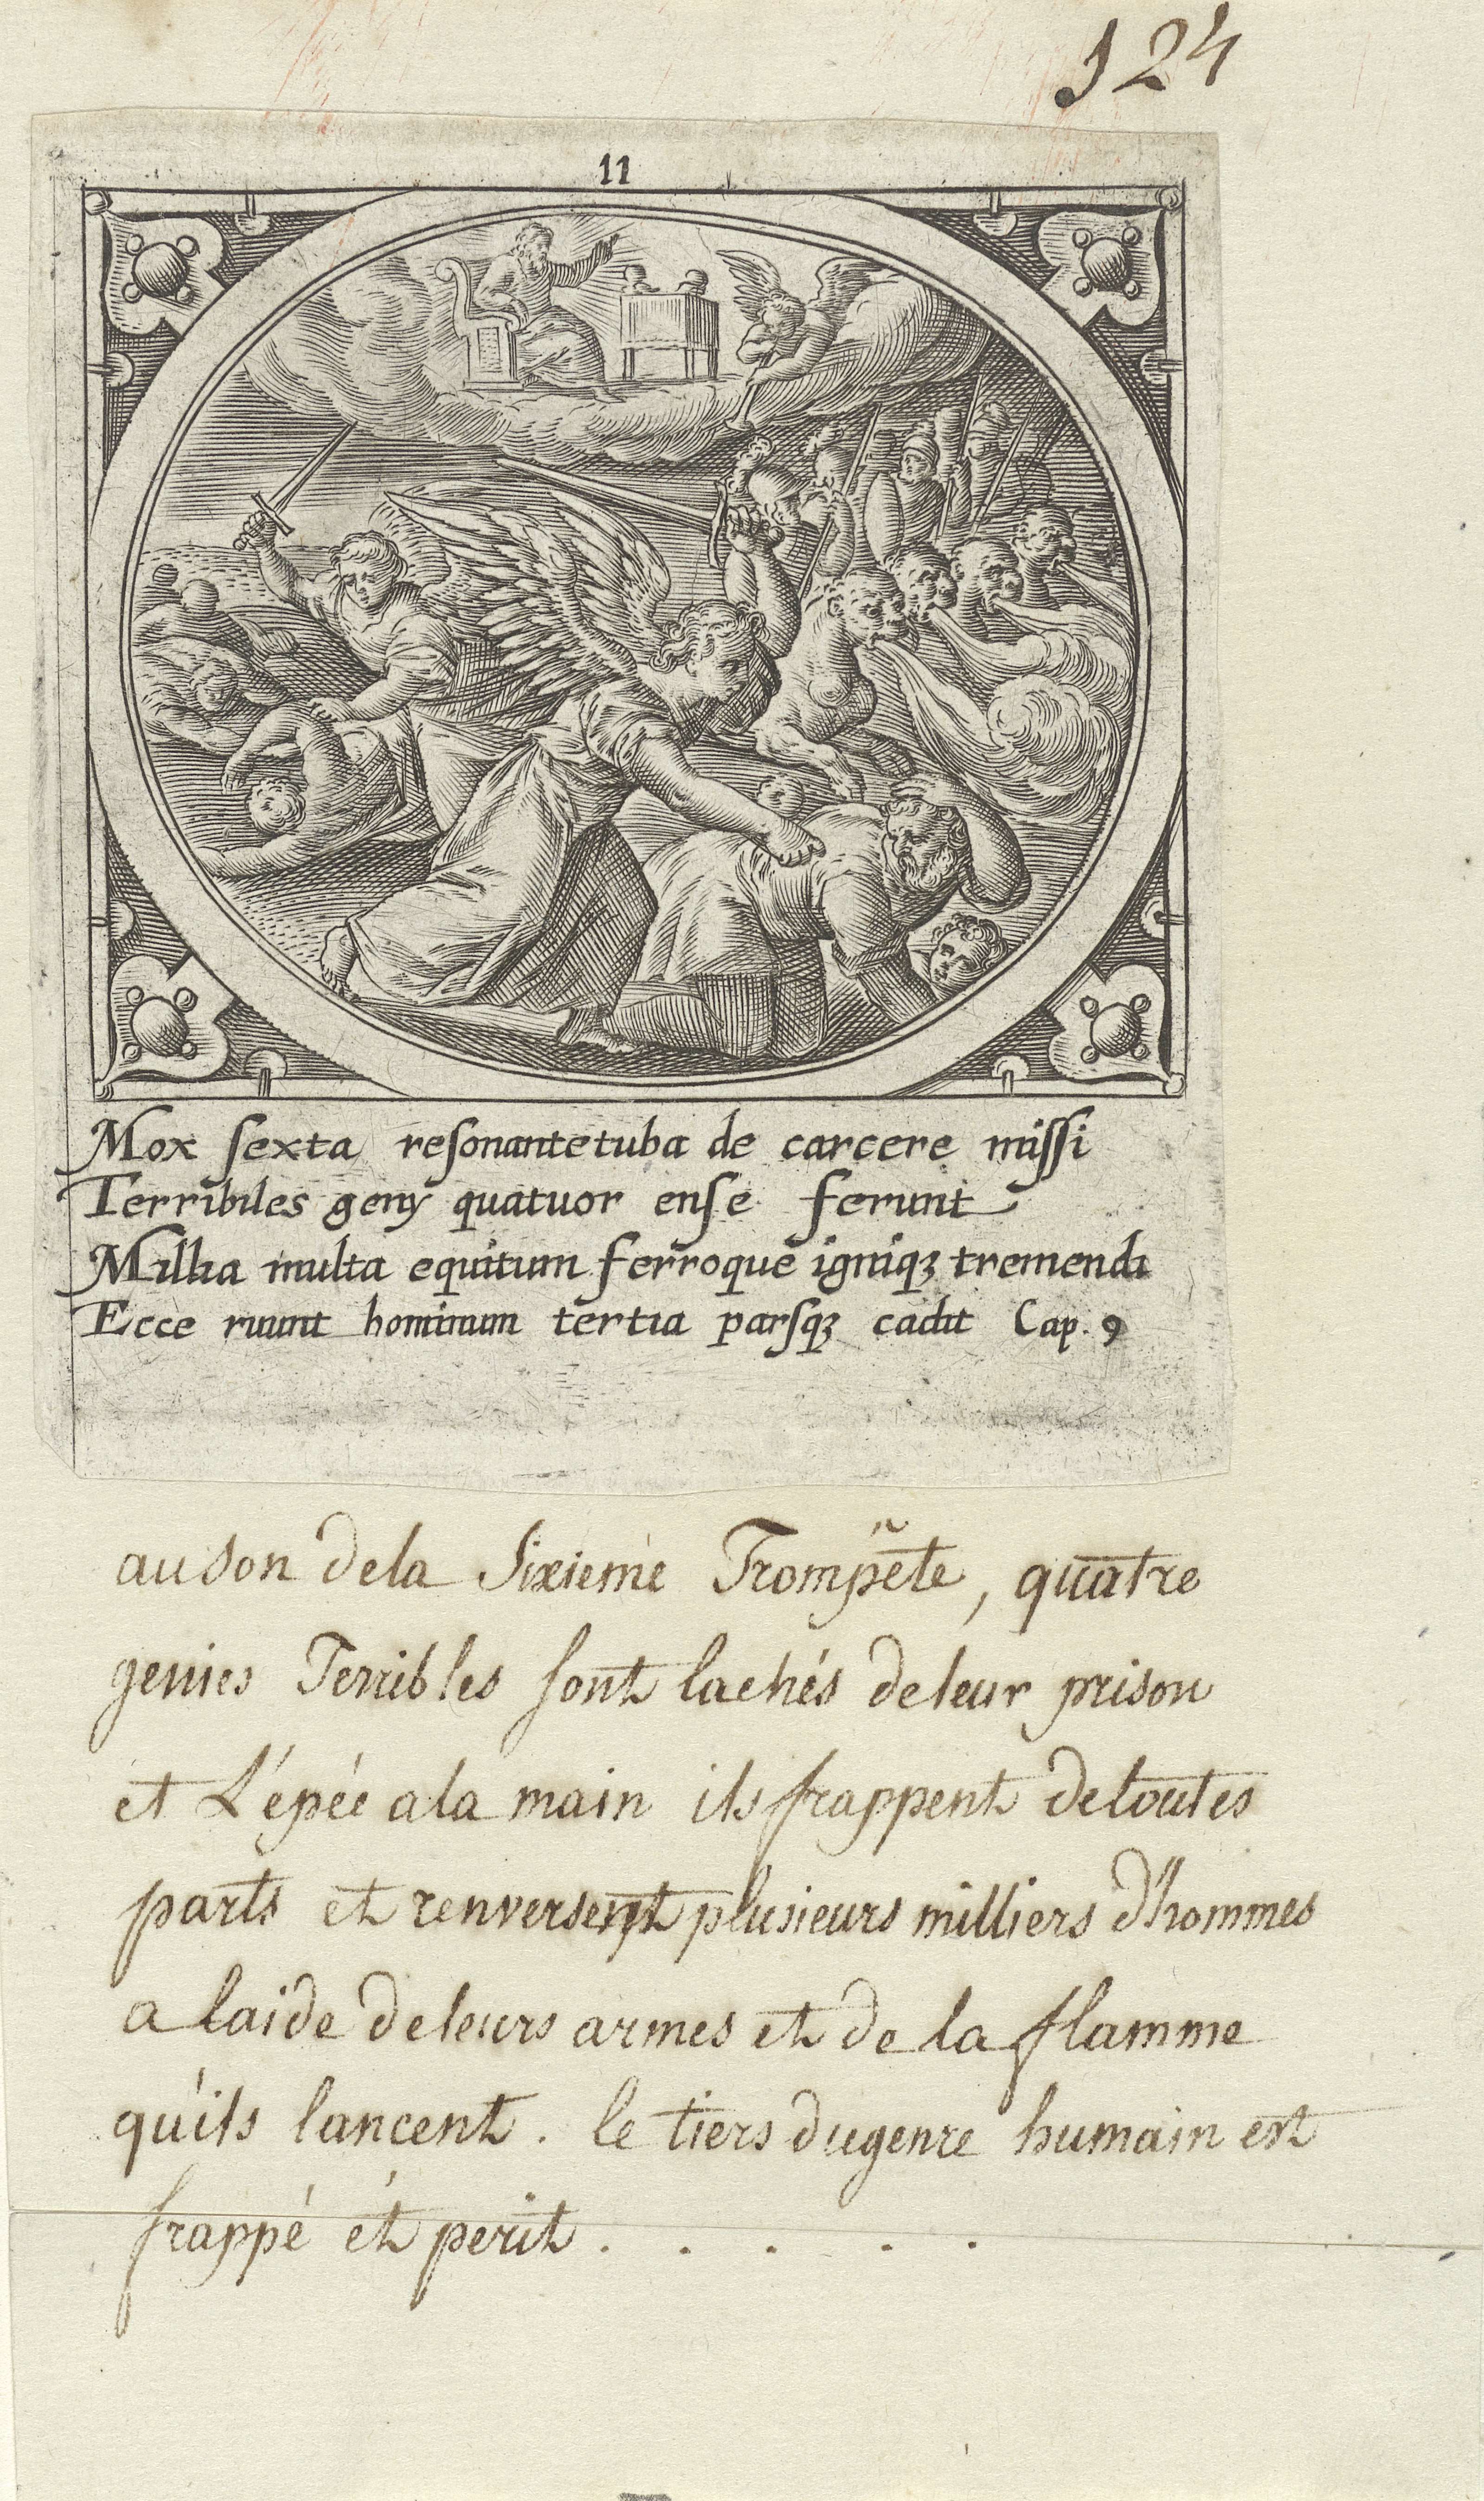 124
11
Mox sexta resonante tuba de carcere missi
Terribiles genÿ quatuor ense ferunt
Millia multa equitum ferroque igniqꝫ tremendi
Ecce ruunt hominum tertia parsqꝫ cadit Cap. 9
au son de la Sixieme Trompête, quatre
genies Terribles sont lachés de leur prison
et L'épée a la main ils frappent de toutes
parts et renversent plusieurs milliers d'hommes
a laide de leurs armes et de la flamme
qu'ils lancent. le tiers du genre humain est
frappé et perit . . . . .